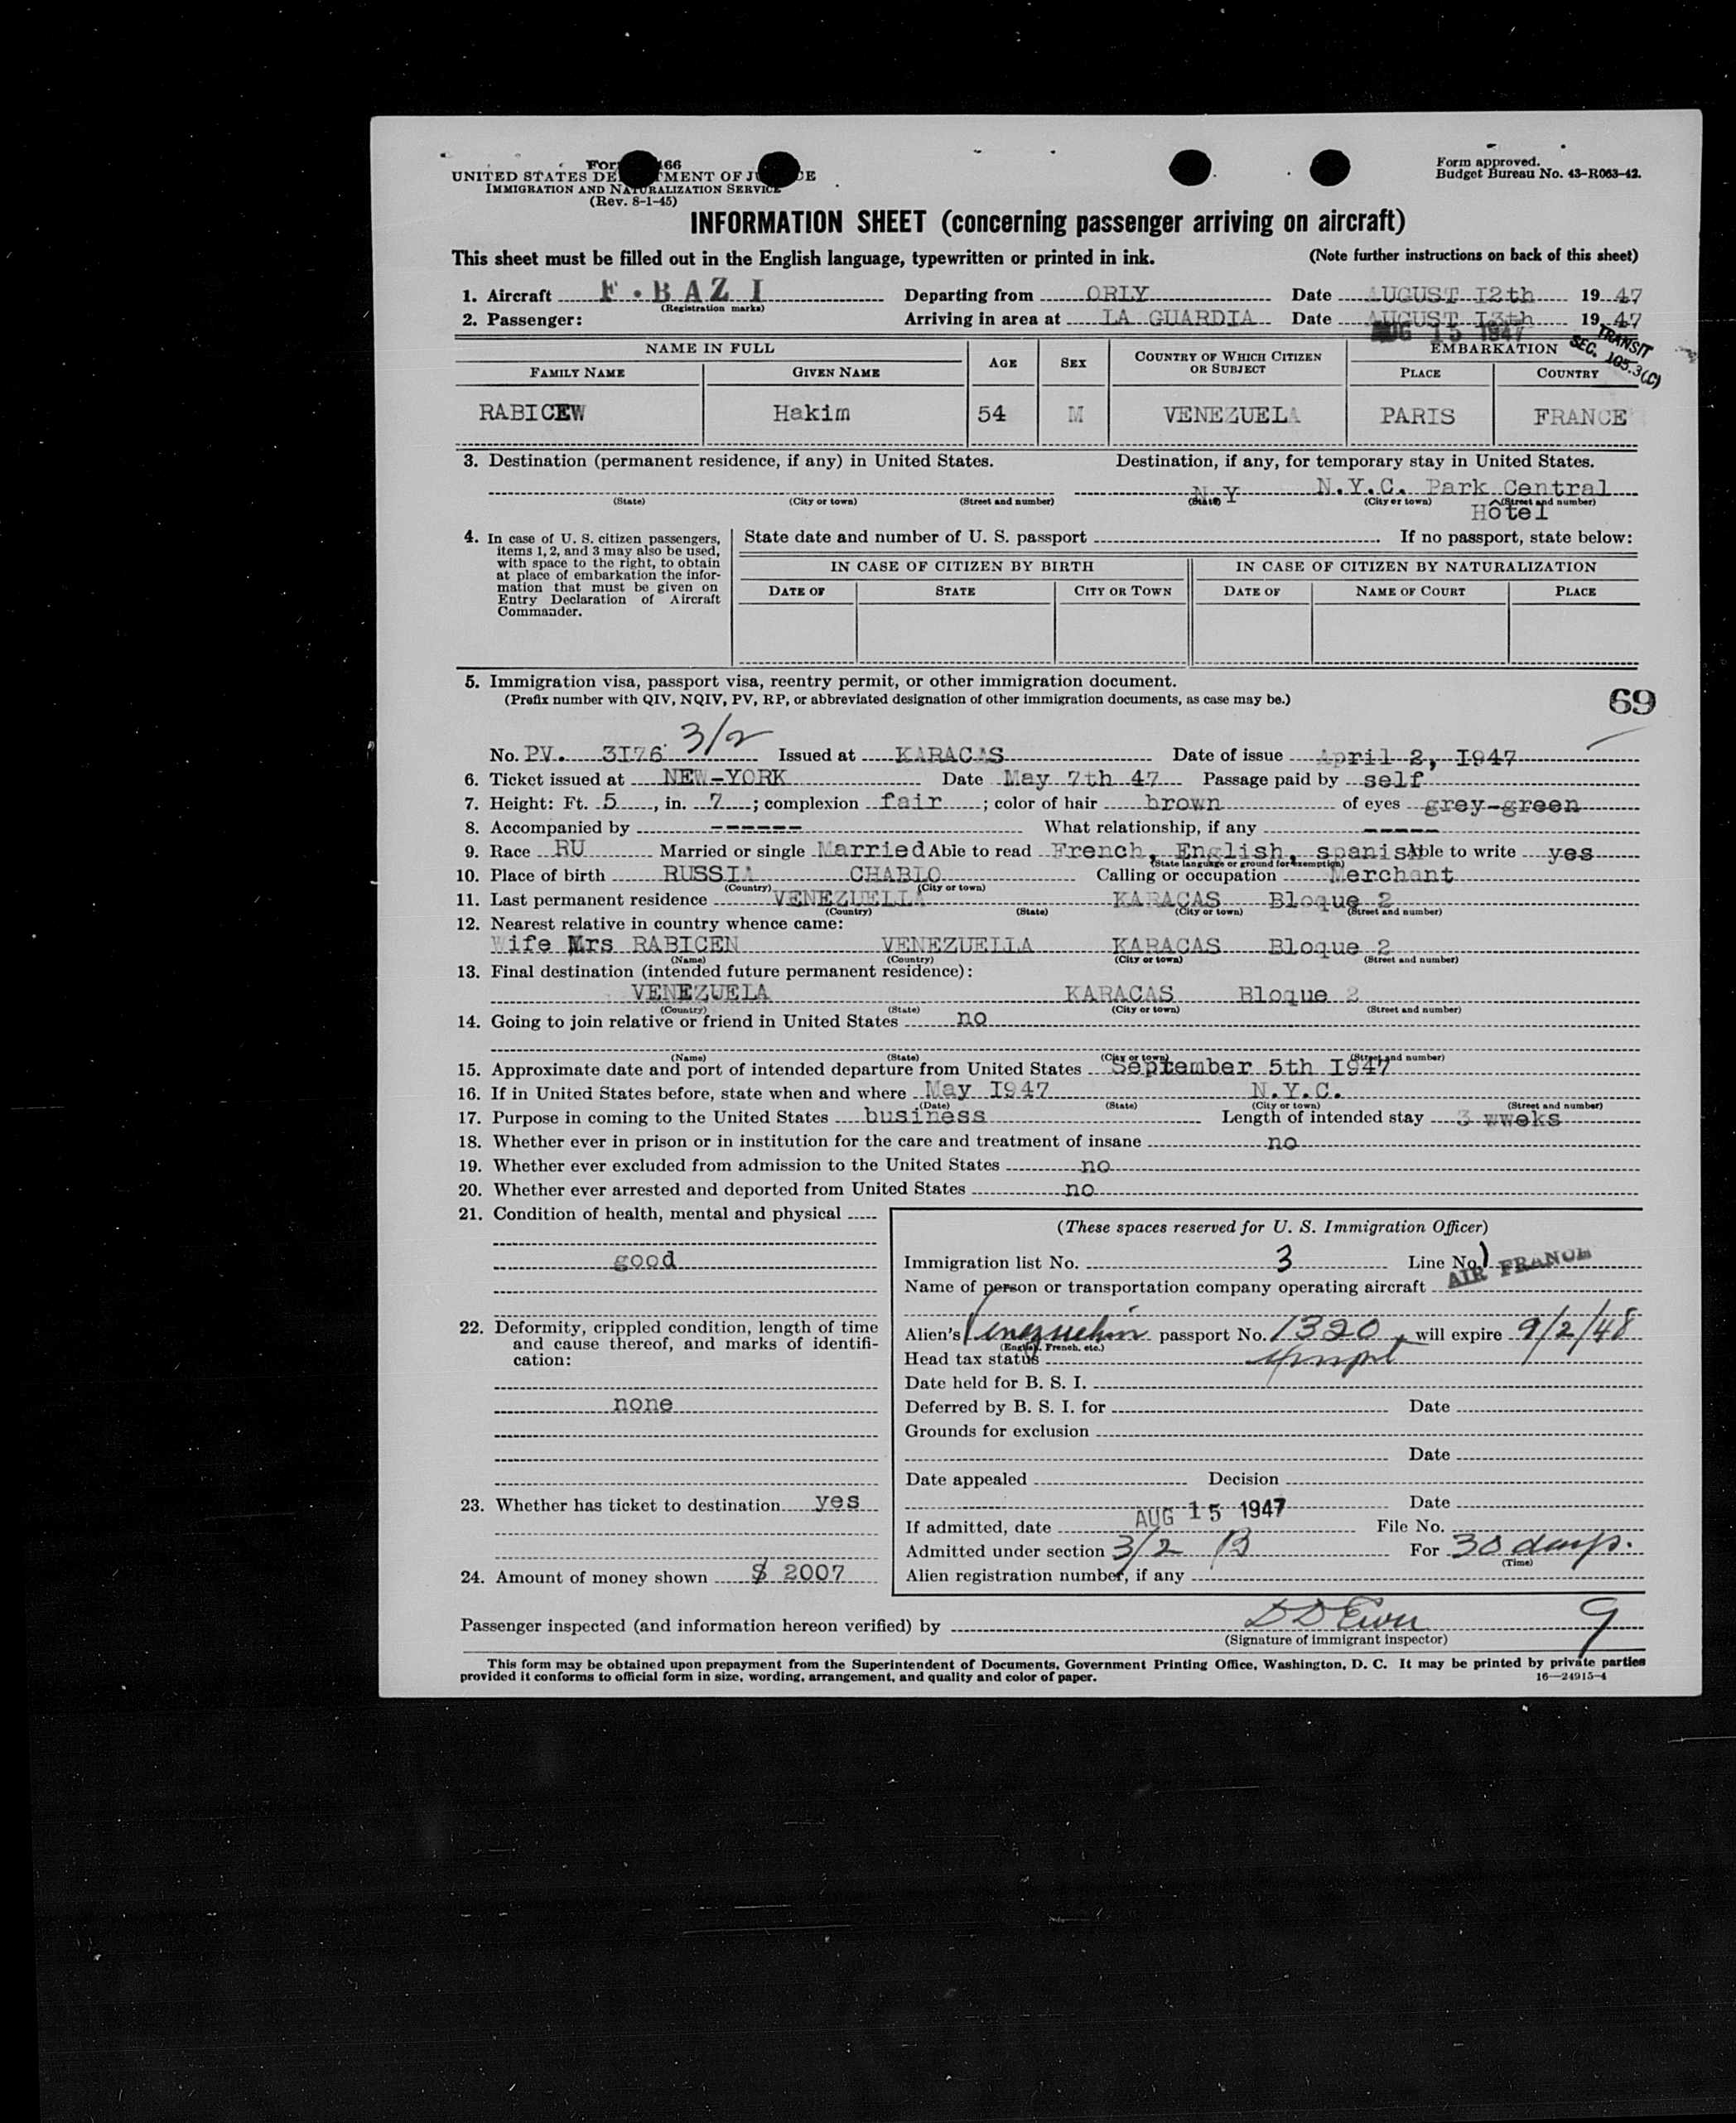 UNITED STATES DE MENT OF J CE
IMMIGRATION AND NATURALIZATION SERVICE
(Rev. 8-1-45)
Form approved.
Budget Bureau No. 43-R063-42.
INFORMATION SHEET (concerning passenger arriving on aircraft)
This sheet must be filled out in the English language, typewritten or printed in ink. (Note further instructions on back of this sheet)
1. Aircraft F.BAZI Departing from ORLY Date AUGUST I2th 1947
(Registration marks)
2. Passenger: Arriving in area at LA GUARDIA Date AUGUST I3th 1947
AUG 15 1947
TRANSIT
SEC. 105.3(C)
NAME IN FULL AGE SEX COUNTRY OF WHICH CITIZEN OR SUBJECT EMBARKATION
FAMILY NAME GIVEN NAME PLACE COUNTRY
RABICEW Hakim 54 M VENEZUELA PARIS FRANCE
3. Destination (permanent residence, if any) in United States. Destination, if any, for temporary stay in United States.
N Y N.Y.C. Park Central
(State) (City or town) (Street and number) (State) (City or town) (Street and number)
Hôtel
4. In case of U. S. citizen passengers, items 1, 2, and 3 may also be used, with space to the right, to obtain at place of embarkation the information that must be given on Entry Declaration of Aircraft Commander.
State date and number of U. S. passport If no passport, state below:
IN CASE OF CITIZEN BY BIRTH IN CASE OF CITIZEN BY NATURALIZATION
DATE OF STATE CITY OR TOWN DATE OF NAME OF COURT PLACE
5. Immigration visa, passport visa, reentry permit, or other immigration document.
(Prefix number with QIV, NQIV, PV, RP, or abbreviated designation of other immigration documents, as case may be.)
69
3/2
No. PV. 3I76 Issued at KARACAS Date of issue April 2, I947
6. Ticket issued at NEW-YORK Date May 7th 47 Passage paid by self
7. Height: Ft. 5, in. 7; complexion fair; color of hair brown of eyes grey-green
8. Accompanied by ------ What relationship, if any -----
9. Race RU Married or single Married Able to read French, English, spanish Able to write yes
(State language or ground for exemption)
10. Place of birth RUSSIA CHABLO Calling or occupation Merchant
(Country) (City or town)
11. Last permanent residence VENEZUELLA KARACAS Bloque 2
(Country) (State) (City or town) (Street and number)
12. Nearest relative in country whence came:
Wife Mrs RABICEN VENEZUELLA KARACAS Bloque 2
(Name) (Country) (City or town) (Street and number)
13. Final destination (intended future permanent residence):
VENEZUELA KARACAS Bloque 2
(Country) (State) (City or town) (Street and number)
14. Going to join relative or friend in United States no
(Name) (State) (City or town) (Street and number)
15. Approximate date and port of intended departure from United States September 5th I947
16. If in United States before, state when and where May I947 N.Y.C.
(Date) (State) (City or town) (Street and number)
17. Purpose in coming to the United States business Length of intended stay 3 wweks
18. Whether ever in prison or in institution for the care and treatment of insane no
19. Whether ever excluded from admission to the United States no
20. Whether ever arrested and deported from United States no
21. Condition of health, mental and physical
good
22. Deformity, crippled condition, length of time and cause thereof, and marks of identification:
none
23. Whether has ticket to destination yes
24. Amount of money shown $ 2007
(These spaces reserved for U. S. Immigration Officer)
Immigration list No. 3 Line No. 1
Name of person or transportation company operating aircraft AIR FRANCE
Alien's Venezuelan passport No. 1320, will expire 9/2/48
(English, French, etc.)
Head tax status exempt
Date held for B. S. I.
Deferred by B. S. I. for Date
Grounds for exclusion
Date
Date appealed Decision
Date
If admitted, date AUG 15 1947 File No.
Admitted under section 3/2 B For 30 days.
(Time)
Alien registration number, if any
Passenger inspected (and information hereon verified) by 9
(Signature of immigrant inspector)
This form may be obtained upon prepayment from the Superintendent of Documents, Government Printing Office, Washington, D. C. It may be printed by private parties
provided it conforms to official form in size, wording, arrangement, and quality and color of paper.
16—24915-4